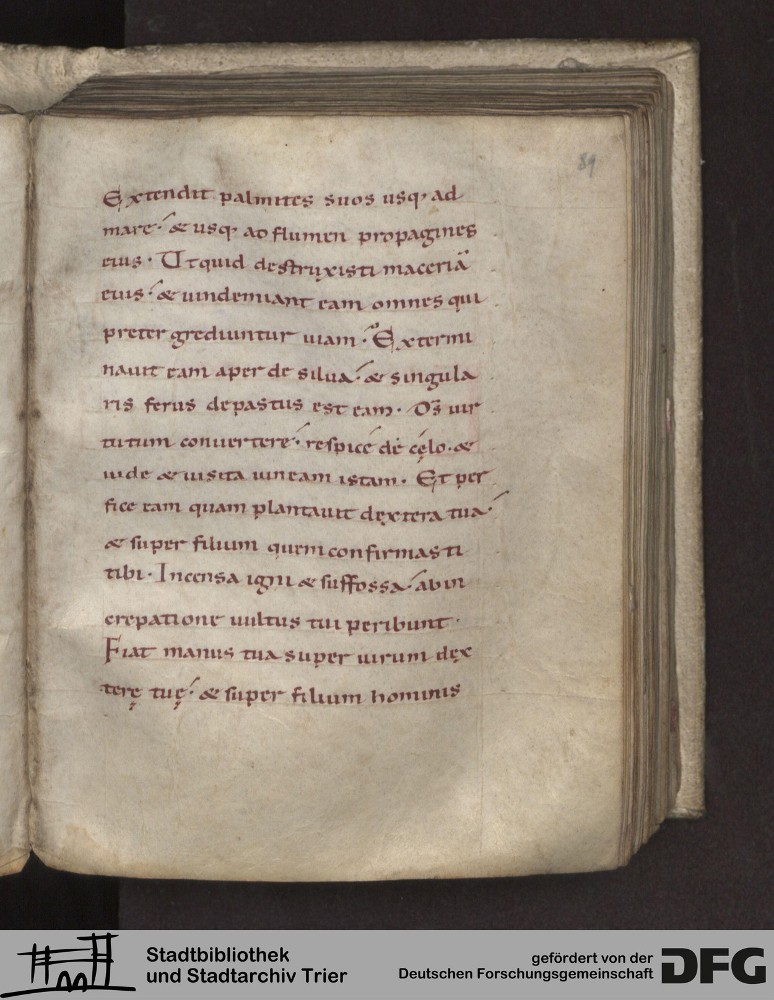 89
Extendit palmites suos usq; ad
mare · & usq; ad flumen propagines
eius · Ut quid destruxisti maceriā
eius · & uindemiant eam omnes qui
preter grediuntur uiam · Extermi
nauit eam aper de silua · & singula
ris ferus depastus est eam · Ds̄ uir
tutum conuertere · respice de cęlo · &
uide & uisita uineam istam · Et per
fice eam quam plantauit dextera tua ·
& super filium quem confirmasti
tibi · Incensa igni & suffossa · ab in
crepatione uultus tui peribunt ·
Fiat manus tua super uirum dex
terę tuę · & super filium hominis
Stadtbibliothek
und Stadtarchiv Trier
gefördert von der
Deutschen Forschungsgemeinschaft
DFG